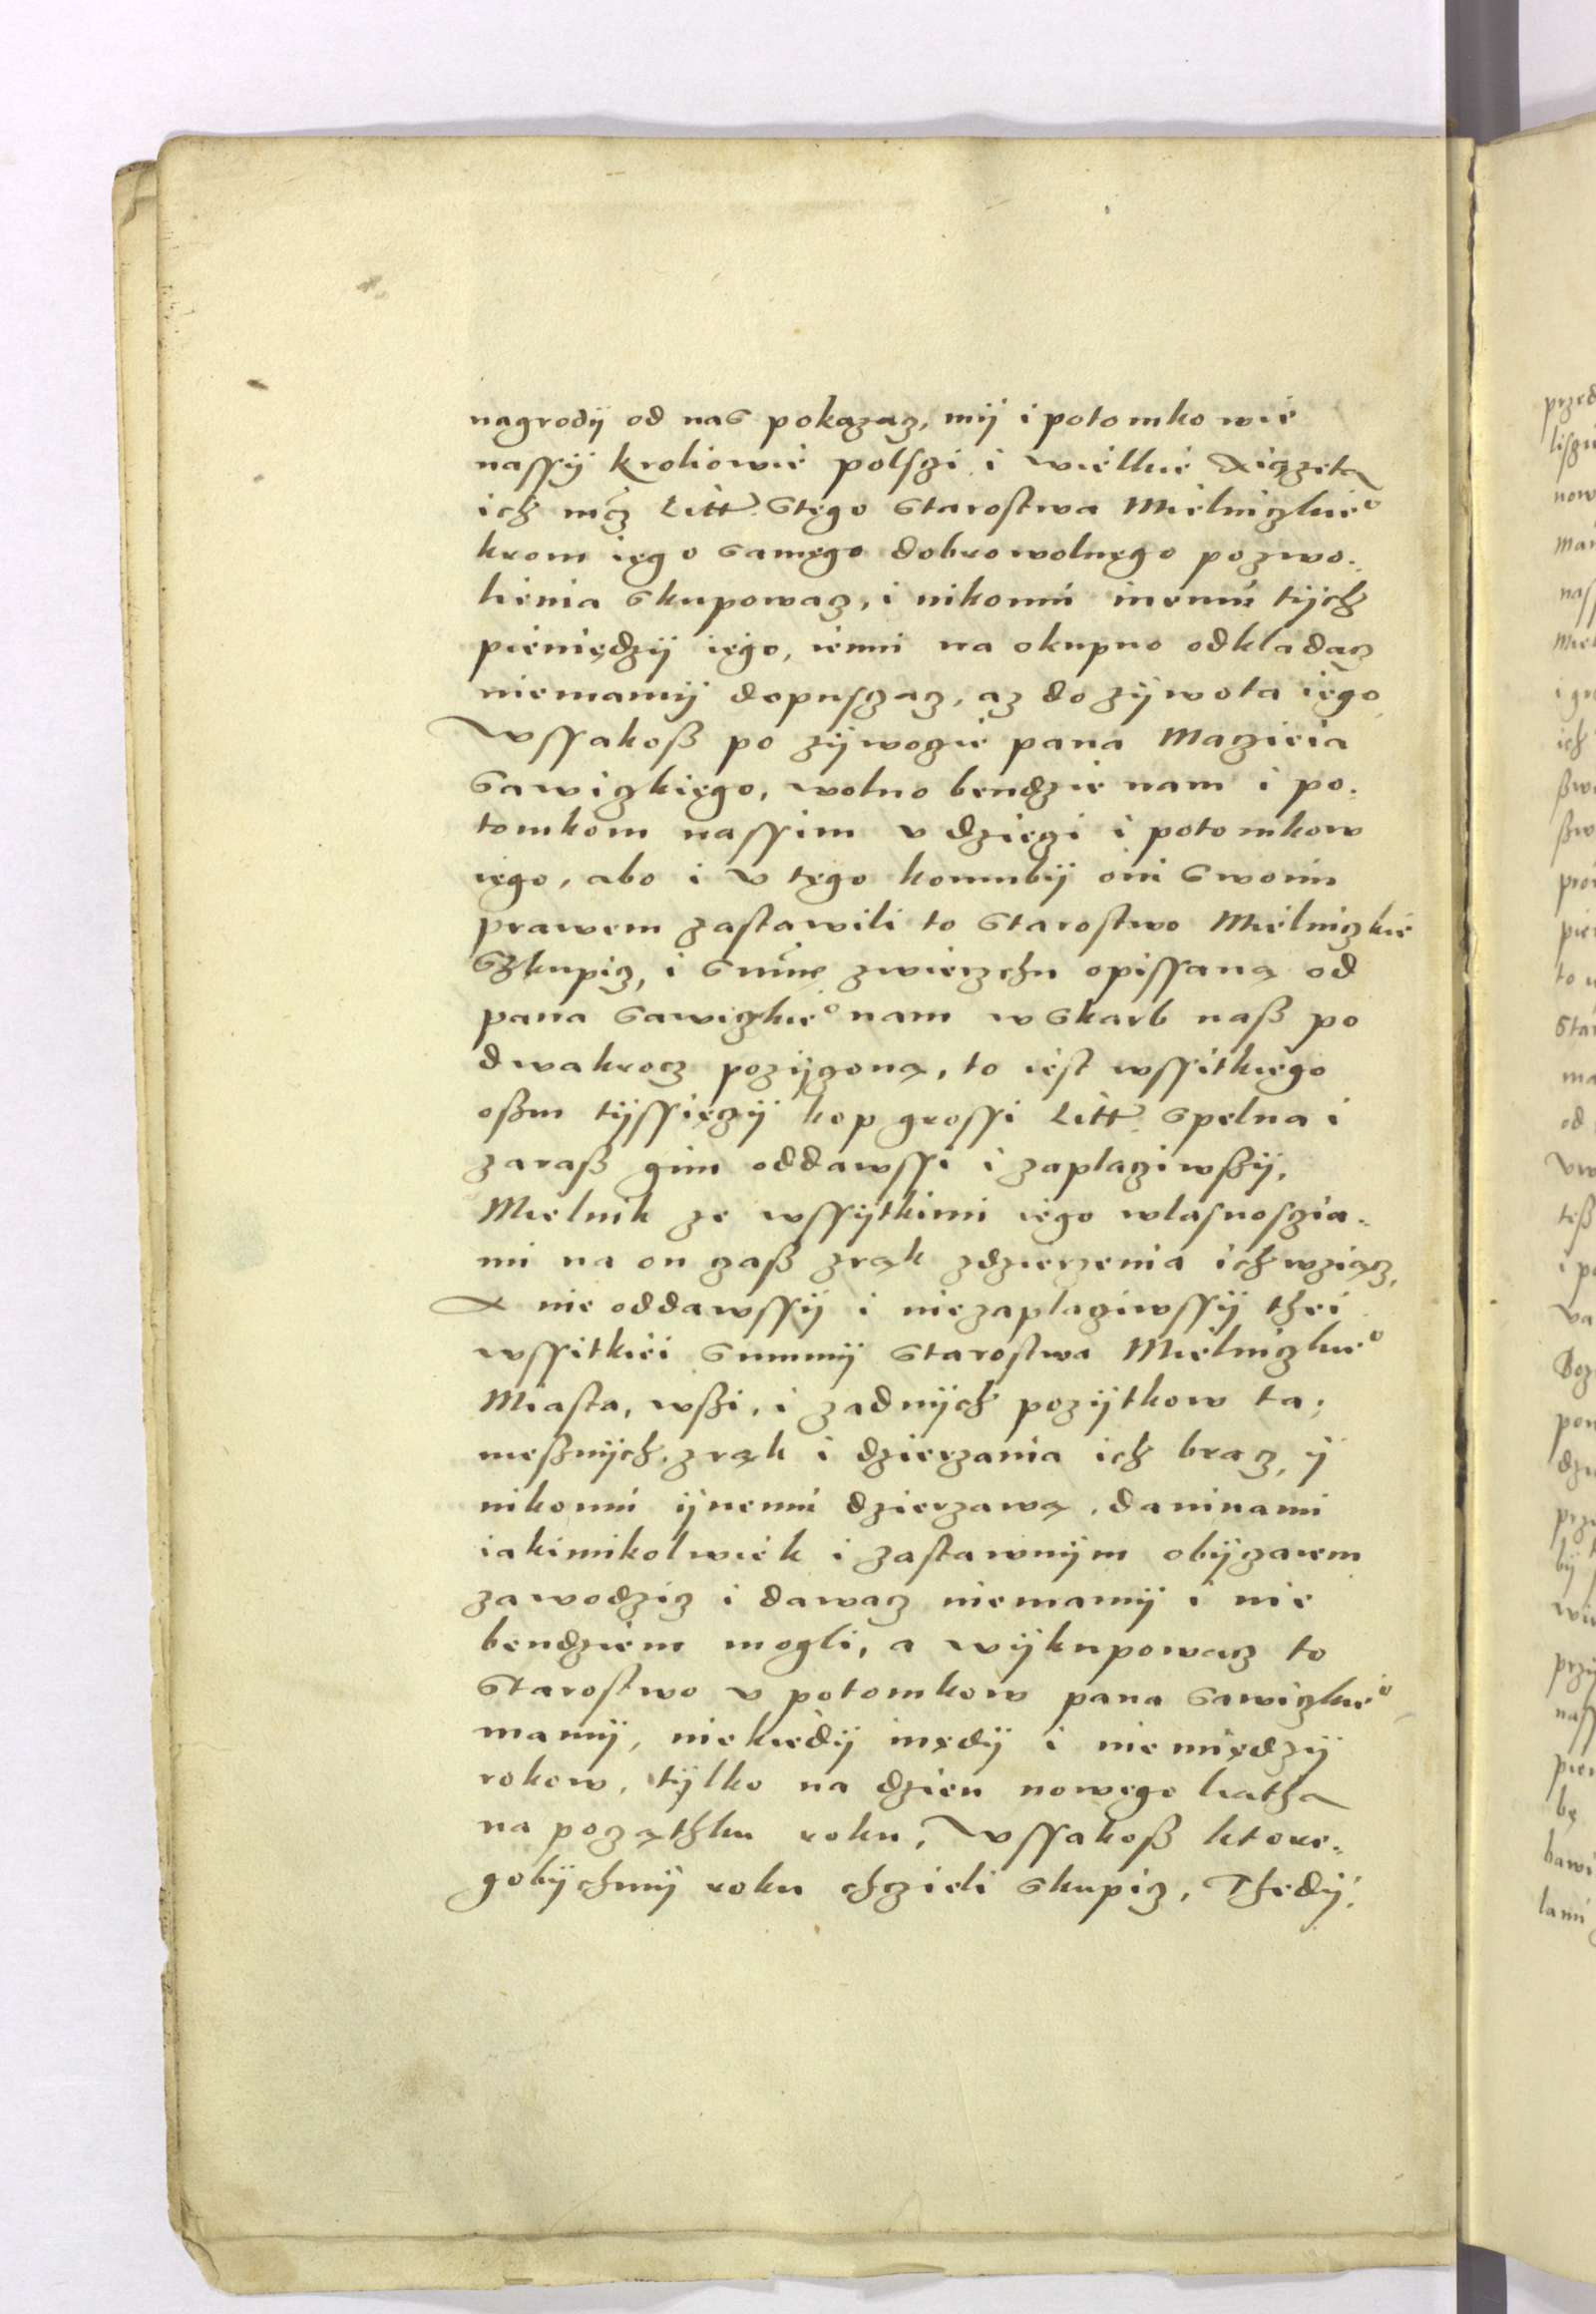 nagrodÿ od nas pokazacz, mÿ i potomkowie
nassÿ kroliowie polsczi i wielkie Xiązeta
ich mcz Litt. Stego Starostwa Mielniczkie°
krom iego samego dobrowolnego pozwo.
lienia skupowacz, i nikomu inemu tÿch
pieniędzÿ iego, iemu na okupno odkladacz
niemamÿ dopusczacz, az do zÿwota iego
Wssakoß po zÿwoczie pana Maczieia
Sawiczkiego, wolno bendzie nam i po.
tomkom nassim v dzieczi i potomkow
iego, abo i v tego komubÿ oni swoim
prawem zastawili to Starostwo Mielniczkie
Szkupicz, i sume zwierzchu opissaną od
pana Sawiczkie° nam w skarb naß po
dwakrocz pozÿczoną, to iest wssitkiego
oßm tÿssięczÿ kop grossi Litt. spelna i
zaraß gim oddawssi i zaplacziwßÿ,
Mielnik ze wssÿtkimi iego wlasnosczia.
mi na on czaß zrąk zdzierzenia ich wziącz,
A nie oddawssÿ i niezaplacziwssÿ thei
wssitkiei summÿ Starostwa Mielniczkie°
Miasta, wßi, i zadnÿch pozÿtkow ta.
meßnÿch, zrąk i dzierzania ich bracz, ÿ
nikomu ÿnemu dzierzawą, daninami
iakimikolwiek i zastawnÿm obÿczaiem
zawodzicz i dawacz niemamÿ i nie
bendziem mogli, a wÿkupowacz to
Starostwo v potomkow pana Sawiczkie°
mamÿ, niekiedÿ inędÿ i niemiędzÿ
rokow, tÿlko na dzien nowego liatha
na począthku roku, Wssakoß ktore.
gobÿchmÿ roku chczieli skupicz, Thedÿ,